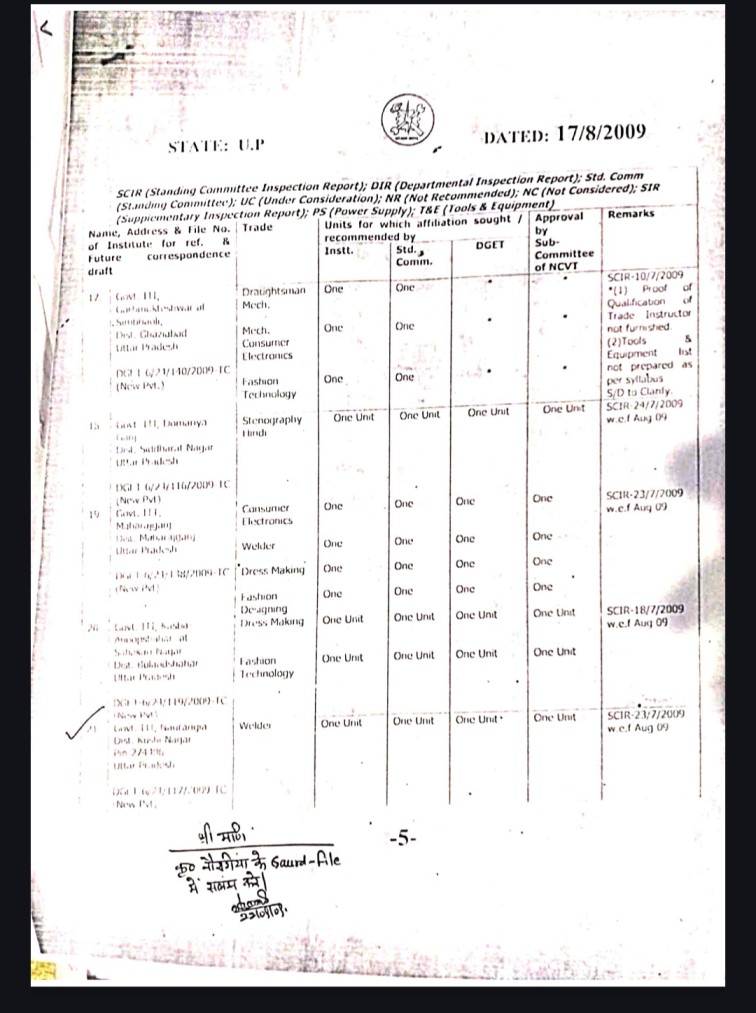 STATE: U.P
DATED: 17/8/2009
SCIR (Standing Committee Inspection Report); DIR (Departmental Inspection Report); Std. Comm
(Standing Committee); UC (Under Consideration); NR (Not Recommended); NC (Not Considered); SIR
(Supplementary Inspection Report); PS (Power Supply); T&E (Tools & Equipment)
Name, Address & File No. of Institute for ref. & Future correspondence draft
Trade
Units for which affiliation sought / recommended by
Instt.
Std. Comm.
DGET
Approval by Sub-Committee of NCVT
Remarks
17 Govt. ITI,
Simbhaoli,
Dist. Ghaziabad
Uttar Pradesh
(New Pvt.)
Draughtsman Mech. One One * *
Mech. Consumer Electronics One One * *
Fashion Technology One One * *
SCIR-10/7/2009
*(1) Proof of
Qualification of
Trade Instructor
not furnished.
(2)Tools &
Equipment list
not prepared as
per syllabus
S/D to Clarify.
Govt. ITI, Domariya
Dist. Siddharat Nagar
Uttar Pradesh
(New Pvt)
Stenography Hindi One Unit One Unit One Unit One Unit
SCIR-24/7/2009
w.e.f Aug 09
19 Govt. ITI,
Maharajganj
Dist. Maharajganj
Uttar Pradesh
(New Pvt)
Consumer Electronics One One One One
Welder One One One One
Dress Making One One One One
Fashion Designing One One One One
SCIR-23/7/2009
w.e.f Aug 09
20 Govt. ITI, Kasba
Dist. Bulandshahar
Uttar Pradesh
(New Pvt)
Dress Making One Unit One Unit One Unit One Unit
Fashion Technology One Unit One Unit One Unit One Unit
SCIR-18/7/2009
w.e.f Aug 09
21 Govt. ITI, Naurangia
Dist. Kushi Nagar
Uttar Pradesh
New Pvt.
Welder One Unit One Unit One Unit One Unit
SCIR-23/7/2009
w.e.f Aug 09
-5-
श्री मणि
कृ० नौरंगिया के Gaurd-file
में संलग्न करें।